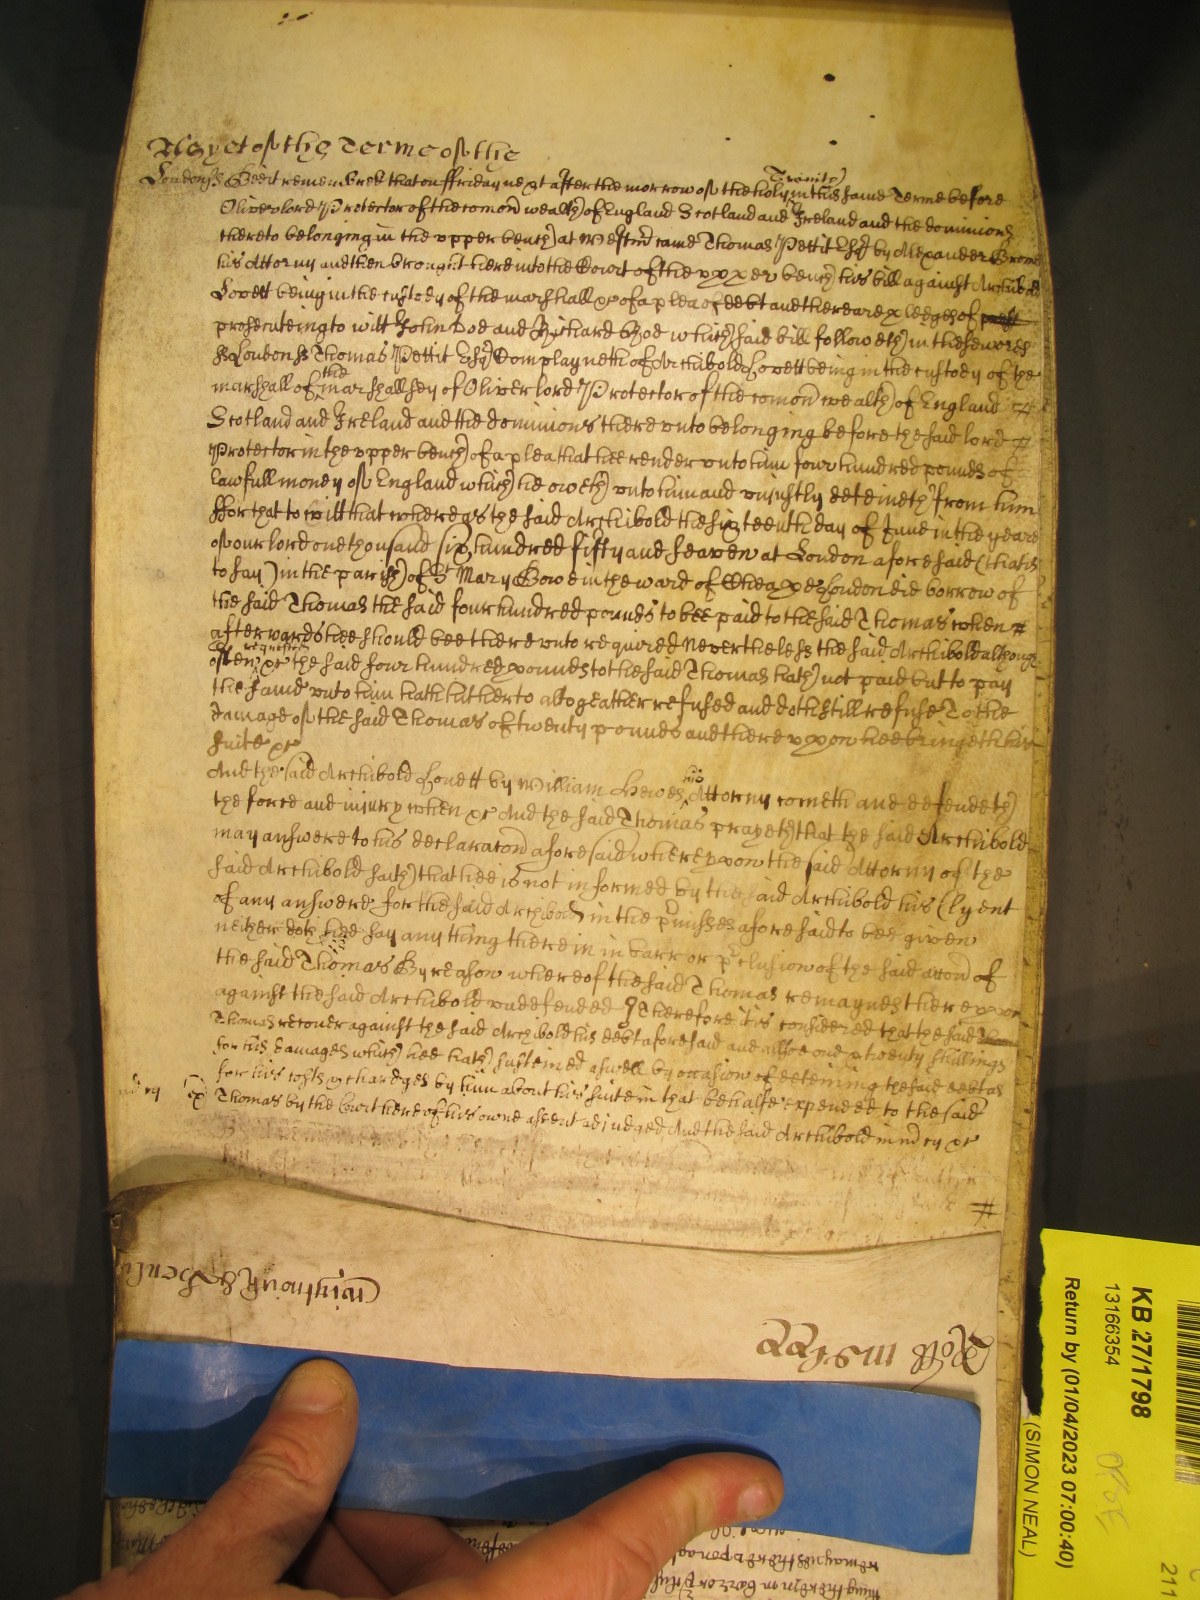 As yet of the Terme of the
London ss Bee it remembred that on ffriday next after the morrow of the holy Trinity in this same Terme before
Oliver lord Protector of the comon wealth of England Scotland and Ireland and the dominions
thereto belonging in the upper bench at Westmr came Thomas Pettit Esqr by Alexander Brome
his Attorny and then brought here into the Court of the upper bench his bill against Archibold
Lovett being in the custody of the marshall &c of a plea of debt and there are pledges of
prosecuteing to witt John Doe and Richard Roe which said bill followeth in these words
ss London ss Thomas Pettit Esqr Complayneth of Archibold Lovett being in the custody of the
marshall of the marshallsey of Oliver lord Protector of the comon wealth of England
Scotland and Ireland and the dominions thereunto belonging before the said lord
Protector in the upper bench of a plea that hee render unto him four hundred pounds of
lawfull money of England which he oweth unto him and unjustly deteineth from him
ffor that to witt that whereas the said Archibold the sixteenth day of June in the yeare
of our lord one thousand six hundred fifty and seaven at London aforesaid (that is
to say) in the parish of St Mary Bowe in the ward of Cheape London did borrow of
the said Thomas the said four hundred pounds to bee paid to the said Thomas when
afterwards hee should bee thereunto required Nevertheless the said Archibold although
often requested &c the said four hundred pounds to the said Thomas hath not paid but to pay
the same unto him hath hitherto altogeather refused and doth still refuse To the
damage of the said Thomas of twenty pounds and thereupon hee bringeth his
suite &c
And the said Archibold Lovett by William Hewes his Attorny cometh and defendeth
the force and injury when &c And the said Thomas prayeth that the said Archibold
may answere to his declaracon aforesaid whereupon the said Attorny of the
said Archibold saith that hee is not informed by the said Archibold his Clyent
of any answere for the said Archibold in the pmisses aforesaid to bee given
neither doth hee say any thing therein in barr or pclusion of the said accon of
the said Thomas By reason whereof the said Thomas remaynes thereupon
against the said Archibold undefended Therefore it is considered that the said
Thomas recover against the said Archibold his debt aforesaid and allsoe one & twenty shillings
for his damages which hee hath susteined aswell by occasion of deteining the said debt as
for his costs & chardges by him about his suite in that behalfe expended to the said
md cy Thomas by the Court here of his owne assent adjudged And the said Archibold in md cy &c
Rolle
KB 27/1798
13166354
Return by (01/04/2023 07:00:40)
(SIMON NEAL)
211